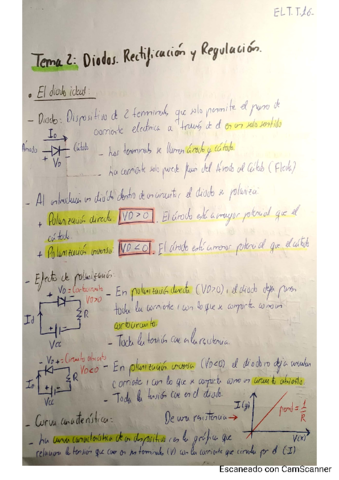 E.T.T.16.
Tema 2: Diodos. Rectificación y Regulación.
• El diodo ideal:
- Diodo: Dispositivo de 2 terminales que solo permite el paso de
corriente eléctrica a través de él en un solo sentido
ID
Ánodo
Cátodo
VD
- los terminales se llaman ánodo y cátodo
- la corriente solo puede fluir del ánodo al cátodo (Flecha)
- Al introducir un diodo dentro de un circuito el diodo se polariza
+ Polarización directa VD>0. El ánodo está a mayor potencial que el
cátodo.
+ Polarización inversa VD<0. El ánodo está a menor potencial que el cátodo
- Efecto de polarización
VD = Cortocircuito
VD>0
ID
R
Vcc
- En polarización directa (VD>0), el diodo deja pasar
toda la corriente, con lo que se comporta como un
cortocircuito
- Toda la tensión cae en la resistencia.
VD = Circuito abierto
VD<0
ID
R
Vcc
- En polarización inversa (VD<0) el diodo no deja circular
corriente, con lo que se comporta como un circuito abierto.
- Toda la tensión cae en el diodo
- Curva característica:
De una resistencia →
I(A)
pend = 1/R
V(V)
- La curva característica de un dispositivo es la gráfica que
relaciona la tensión que cae en sus terminales (V) con la corriente que circula por él (I)
Escaneado con CamScanner